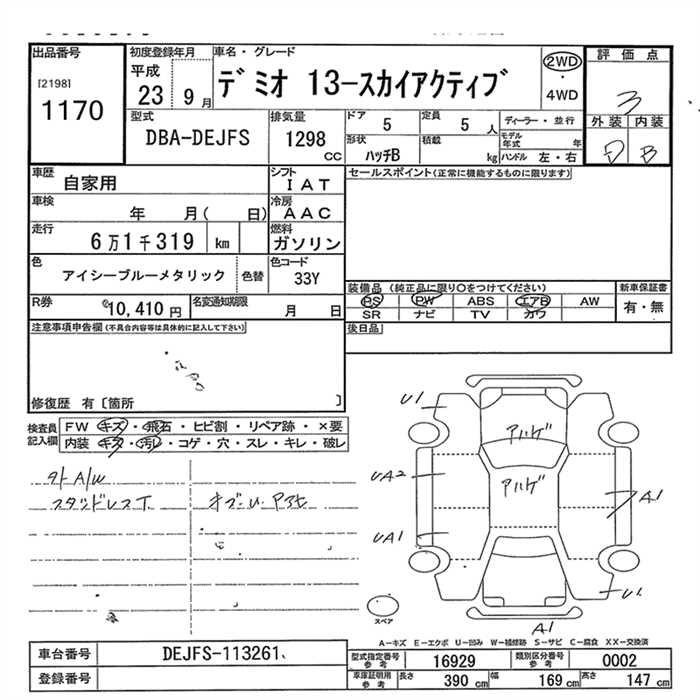 出品番号
[2198]
1170
初度登録年月
平成
23 9 月
車名・グレード
デミオ 13-スカイアクティブ
2WD
・
4WD
評価点
3
外装 内装
D B
型式
DBA-DEJFS
排気量
1298
CC
ドア
5
定員
5 人
ディーラー・並行
形状
ハッチB
積載
kg
モデル年式 年
ハンドル 左・右
車歴
自家用
シフト
IAT
車検
年 月( 日)
冷房
AAC
走行
6万1千319 km
燃料
ガソリン
色
アイシーブルーメタリック
色替
色コード
33Y
R券
10,410 円
名変通知期限
月 日
セールスポイント(正常に機能するものに限ります)
装備品 (純正品に限り○をつけてください)
PS PW ABS エアB AW
SR ナビ TV カワ
新車保証書
有・無
後日品
注意事項申告欄(不具合内容等は具体的に記入して下さい)
修復歴 有〔箇所 〕
検査員記入欄
FW キズ・飛石・ヒビ割・リペア跡・×要
内装 キズ・汚レ・コゲ・穴・スレ・キレ・破レ
外A/W
スタッドレスT
U1
アハゲ
アハゲ
UA2
A1
UA1
U1
A1
スペア
A-キズ E-エクボ U-凹み W-補修跡 S-サビ C-腐食 XX-交換済
車台番号
DEJFS-113261
登録番号
型式指定番号 参考
16929
類別区分番号 参考
0002
車庫証明用 参考
長さ 390 cm
幅 169 cm
高さ 147 cm